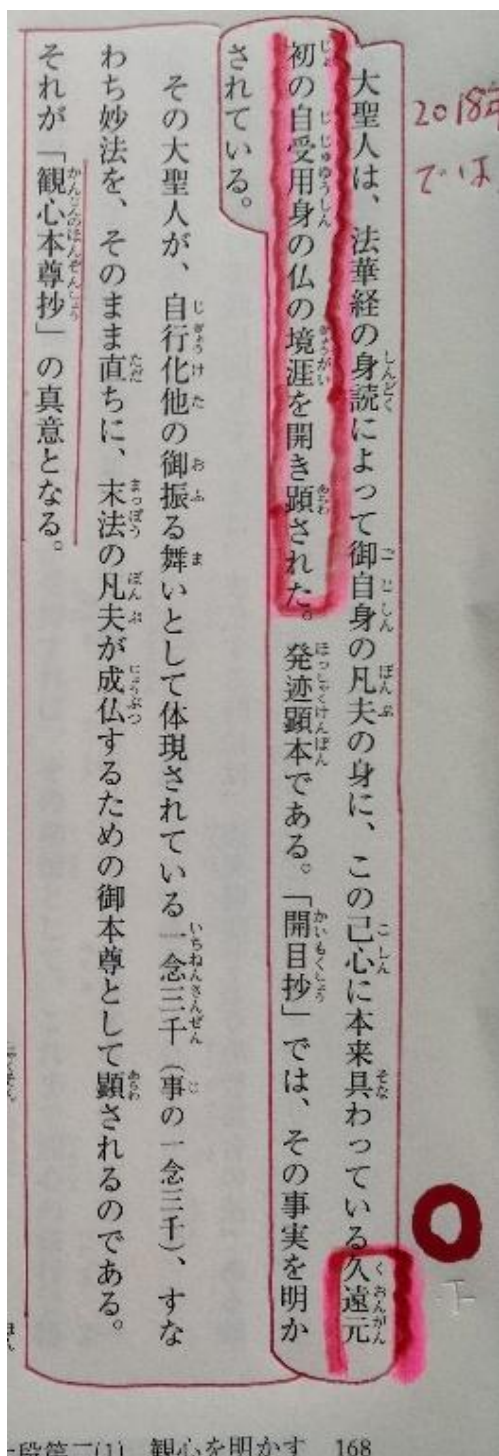 2018年
では
大聖人は、法華経の身読によって御自身の凡夫の身に、この己心に本来具わっている久遠元
初の自受用身の仏の境涯を開き顕された。発迹顕本である。「開目抄」では、その事実を明か
されている。
その大聖人が、自行化他の御振る舞いとして体現されている一念三千（事の一念三千）、すな
わち妙法を、そのまま直ちに、末法の凡夫が成仏するための御本尊として顕されるのである。
それが「観心本尊抄」の真意となる。
段第二(1) 観心を明かす 168